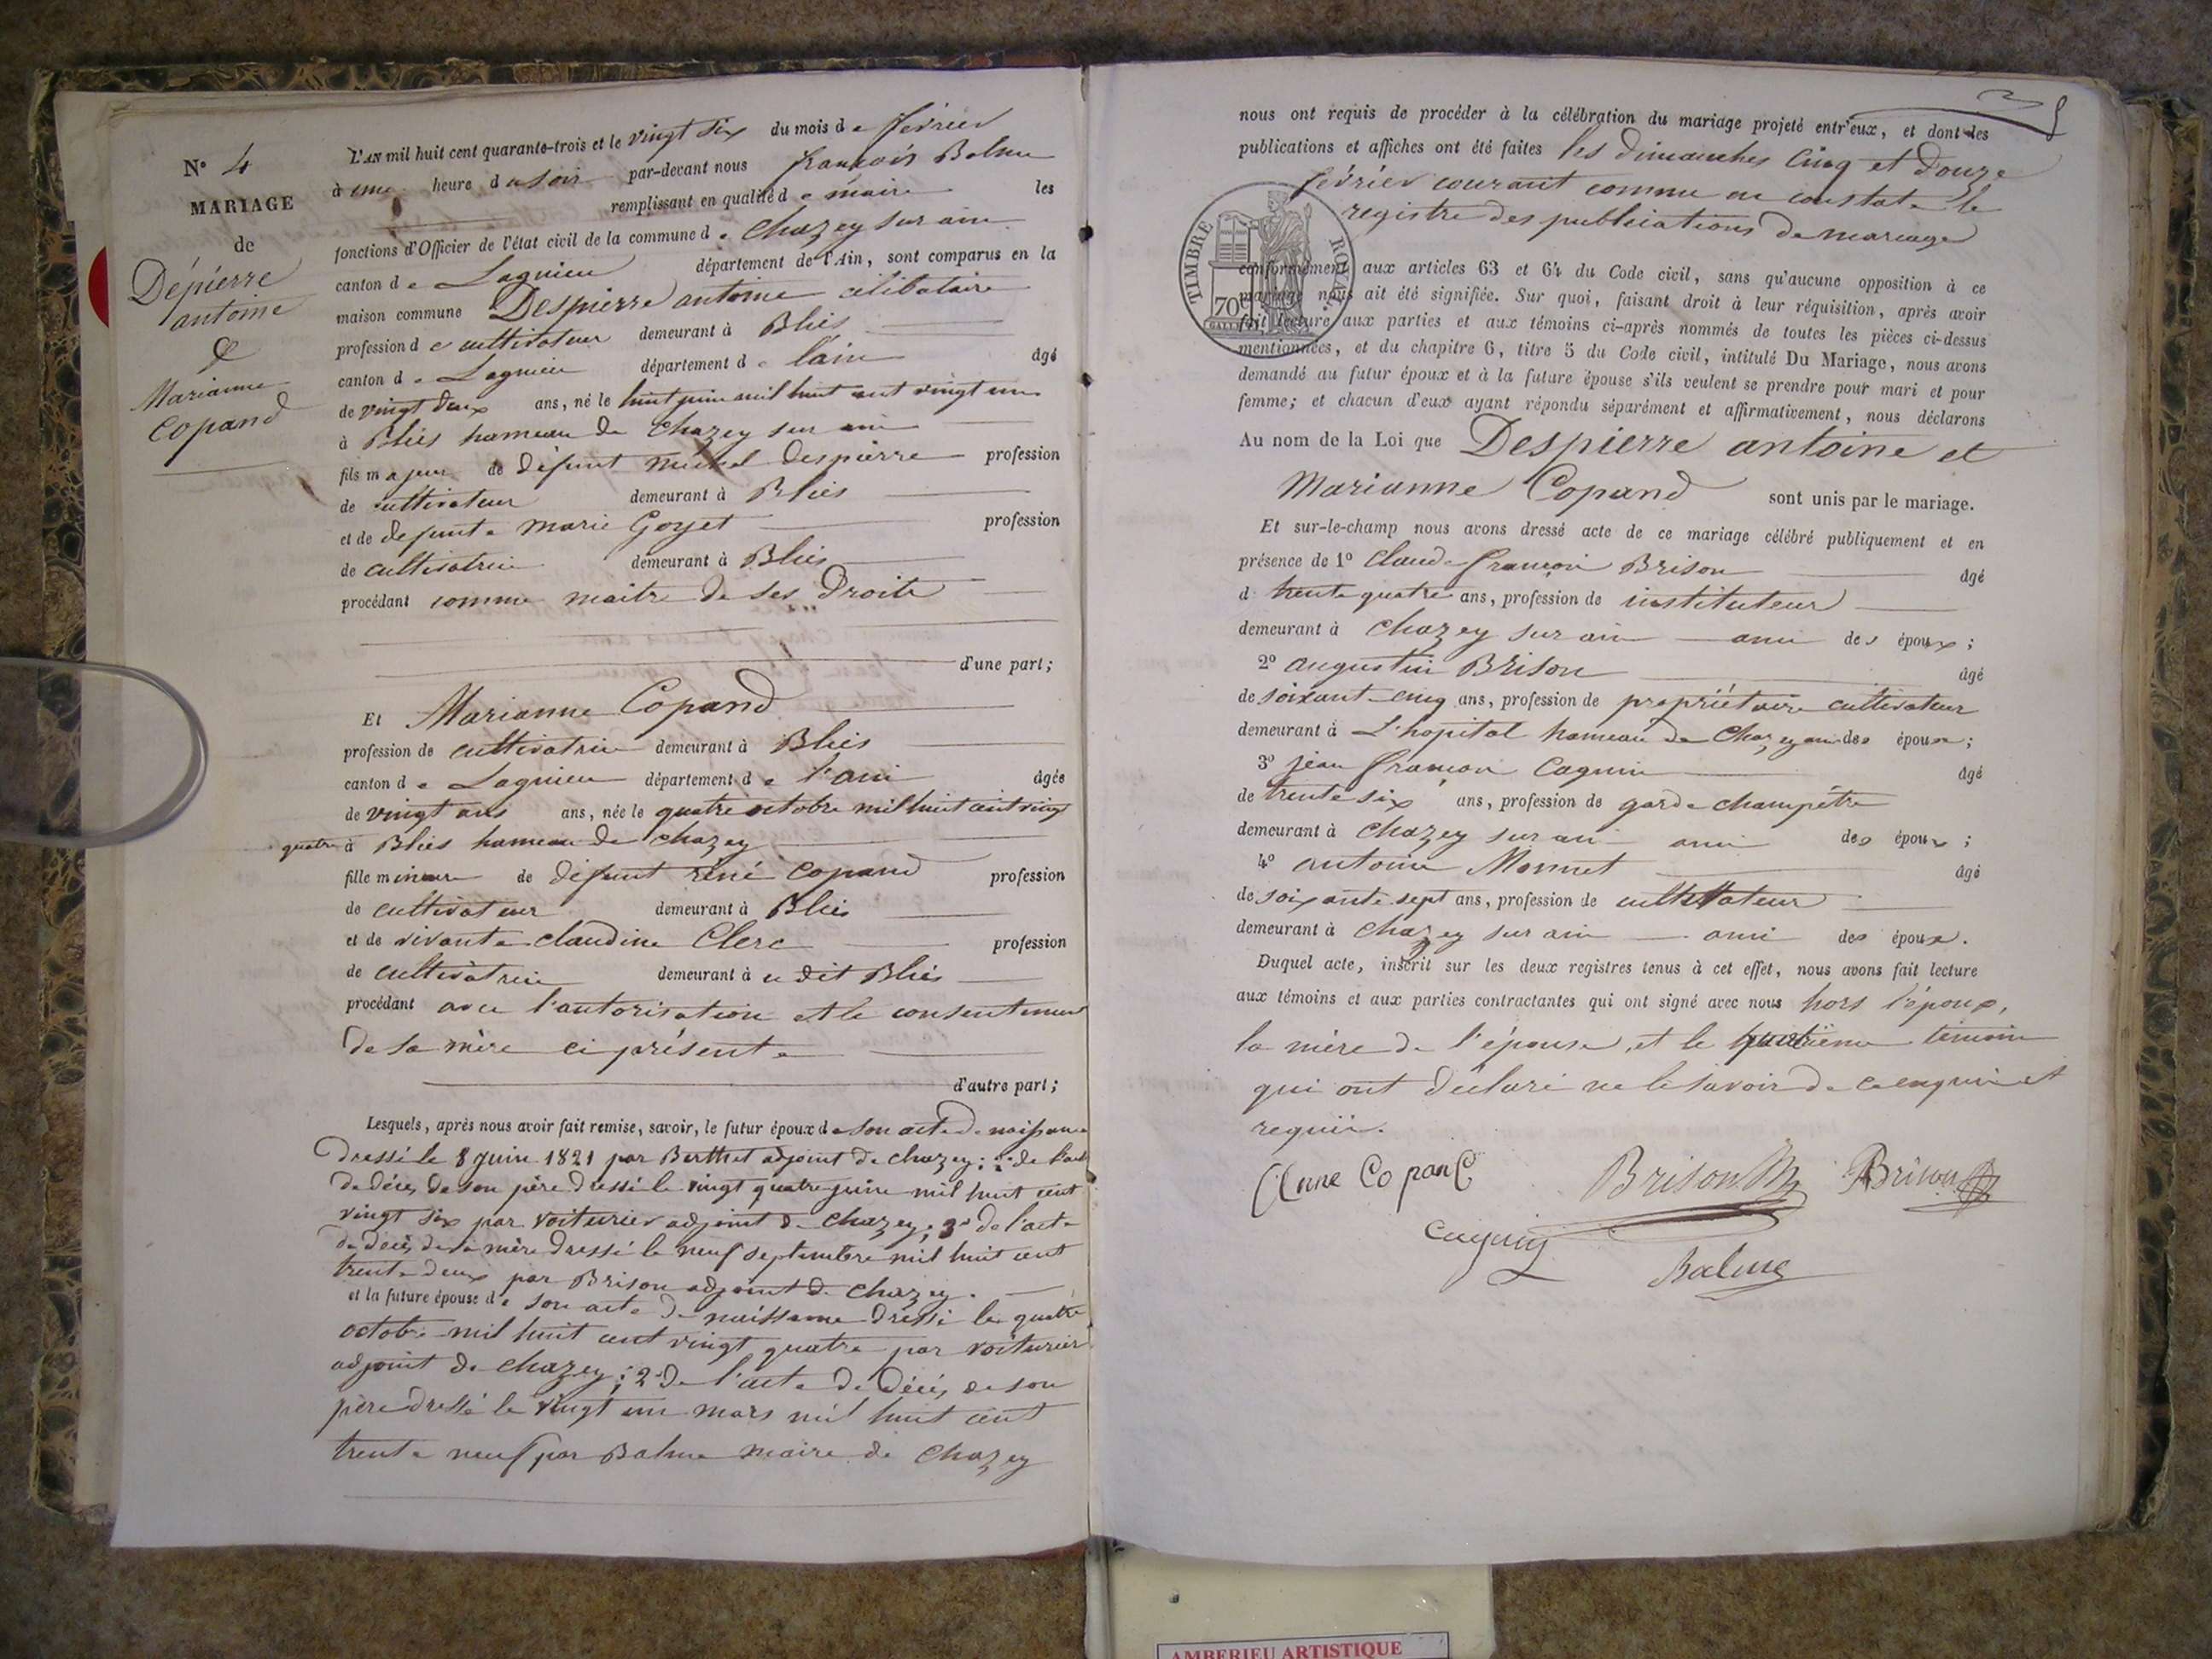 N° 4
MARIAGE
de
Dépierre
antoine
&
Marianne
Copand
L'AN mil huit cent quarante-trois et le vingt six du mois de février
à une heure du soir par-devant nous françois Balme
remplissant en qualité de maire les
fonctions d'Officier de l'état civil de la commune de Chazey sur ain
canton de Lagnieu département de l'Ain, sont comparus en la
maison commune Despierre antoine célibataire
profession de cultivateur demeurant à Blies
canton de Lagnieu département de l'ain âgé
de vingt deux ans, né le huit juin mil huit cent vingt un
à Bliés hameau de Chazey sur ain
fils majeur de défunt michel despierre profession
de cultivateur demeurant à Bliés
et de defunte marie Goyet profession
de cultivatrice demeurant à Bliés
procédant comme maitre de ses Droits
d'une part;
Et Marianne Copand
profession de cultivatrice demeurant à Bliés
canton de Lagnieu département de l'ain âgée
de vingt ans ans, née le quatre octobre mil huit cent vingt
quatre à Bliés hameau de chazey
fille mineure de défunt réné Copand profession
de cultivateur demeurant à Bliés
et de vivante claudine Clerc profession
de cultivatrice demeurant à u dit Bliés
procédant avec l'autorisation et le consentement
de sa mère ci présente
d'autre part;
Lesquels, après nous avoir fait remise, savoir, le futur époux de son acte de naissance
dressé le 8 juin 1821 par Berthet adjoint de chazey; 2° de l'acte
de décès de son père dressé le vingt quatre juin mil huit cent
vingt six par voiturier adjoint de chazey; 3° de l'acte
de décès de sa mère dressé le neuf septembre mil huit cent
trente deux par Brison adjoint de chazey.
et la future épouse de son acte de naissance dressé le quatre
octobre mil huit cent vingt quatre par voiturier
adjoint de chazey; 2° de l'acte de décés de son
père dressé le vingt un mars mil huit cent
trente neuf par Balme maire de chazey
nous ont requis de procéder à la célébration du mariage projeté entr'eux, et dont les
publications et affiches ont été faites les dimanches cinq et douze
février courant comme on constate le
registre des publications de mariage
TIMBRE ROYAL.
70
conformément aux articles 63 et 64 du Code civil, sans qu'aucune opposition à ce
mariage nous ait été signifiée. Sur quoi, faisant droit à leur réquisition, après avoir
fait lecture aux parties et aux témoins ci-après nommés de toutes les pièces ci-dessus
mentionnées, et du chapitre 6, titre 5 du Code civil, intitulé Du Mariage, nous avons
demandé au futur époux et à la future épouse s'ils veulent se prendre pour mari et pour
femme; et chacun d'eux ayant répondu séparément et affirmativement, nous déclarons
Au nom de la Loi que Despierre antoine et
Marianne Copand sont unis par le mariage.
Et sur-le-champ nous avons dressé acte de ce mariage célébré publiquement et en
présence de 1° Claude françois Brison âgé
d trente quatre ans, profession de instituteur
demeurant à Chazey sur ain ami des époux;
2° augustin Brison âgé
de soixante cinq ans, profession de propriétaire cultivateur
demeurant à L'hopital hameau de Chazey ami des époux;
3° jean françois Cagnin âgé
de trente six ans, profession de garde champêtre
demeurant à Chazey sur ain ami des époux;
4° antoine Monnet âgé
de soixante sept ans, profession de cultivateur
demeurant à Chazey sur ain ami des époux.
Duquel acte, inscrit sur les deux registres tenus à cet effet, nous avons fait lecture
aux témoins et aux parties contractantes qui ont signé avec nous hors l'époux,
la mère de l'épouse, et le quatrième témoin
qui ont déclaré ne le savoir de ce enquis et
requis.
Anne Copand Brison Brison
Cagnin Balme
AMBERIEU ARTISTIQUE